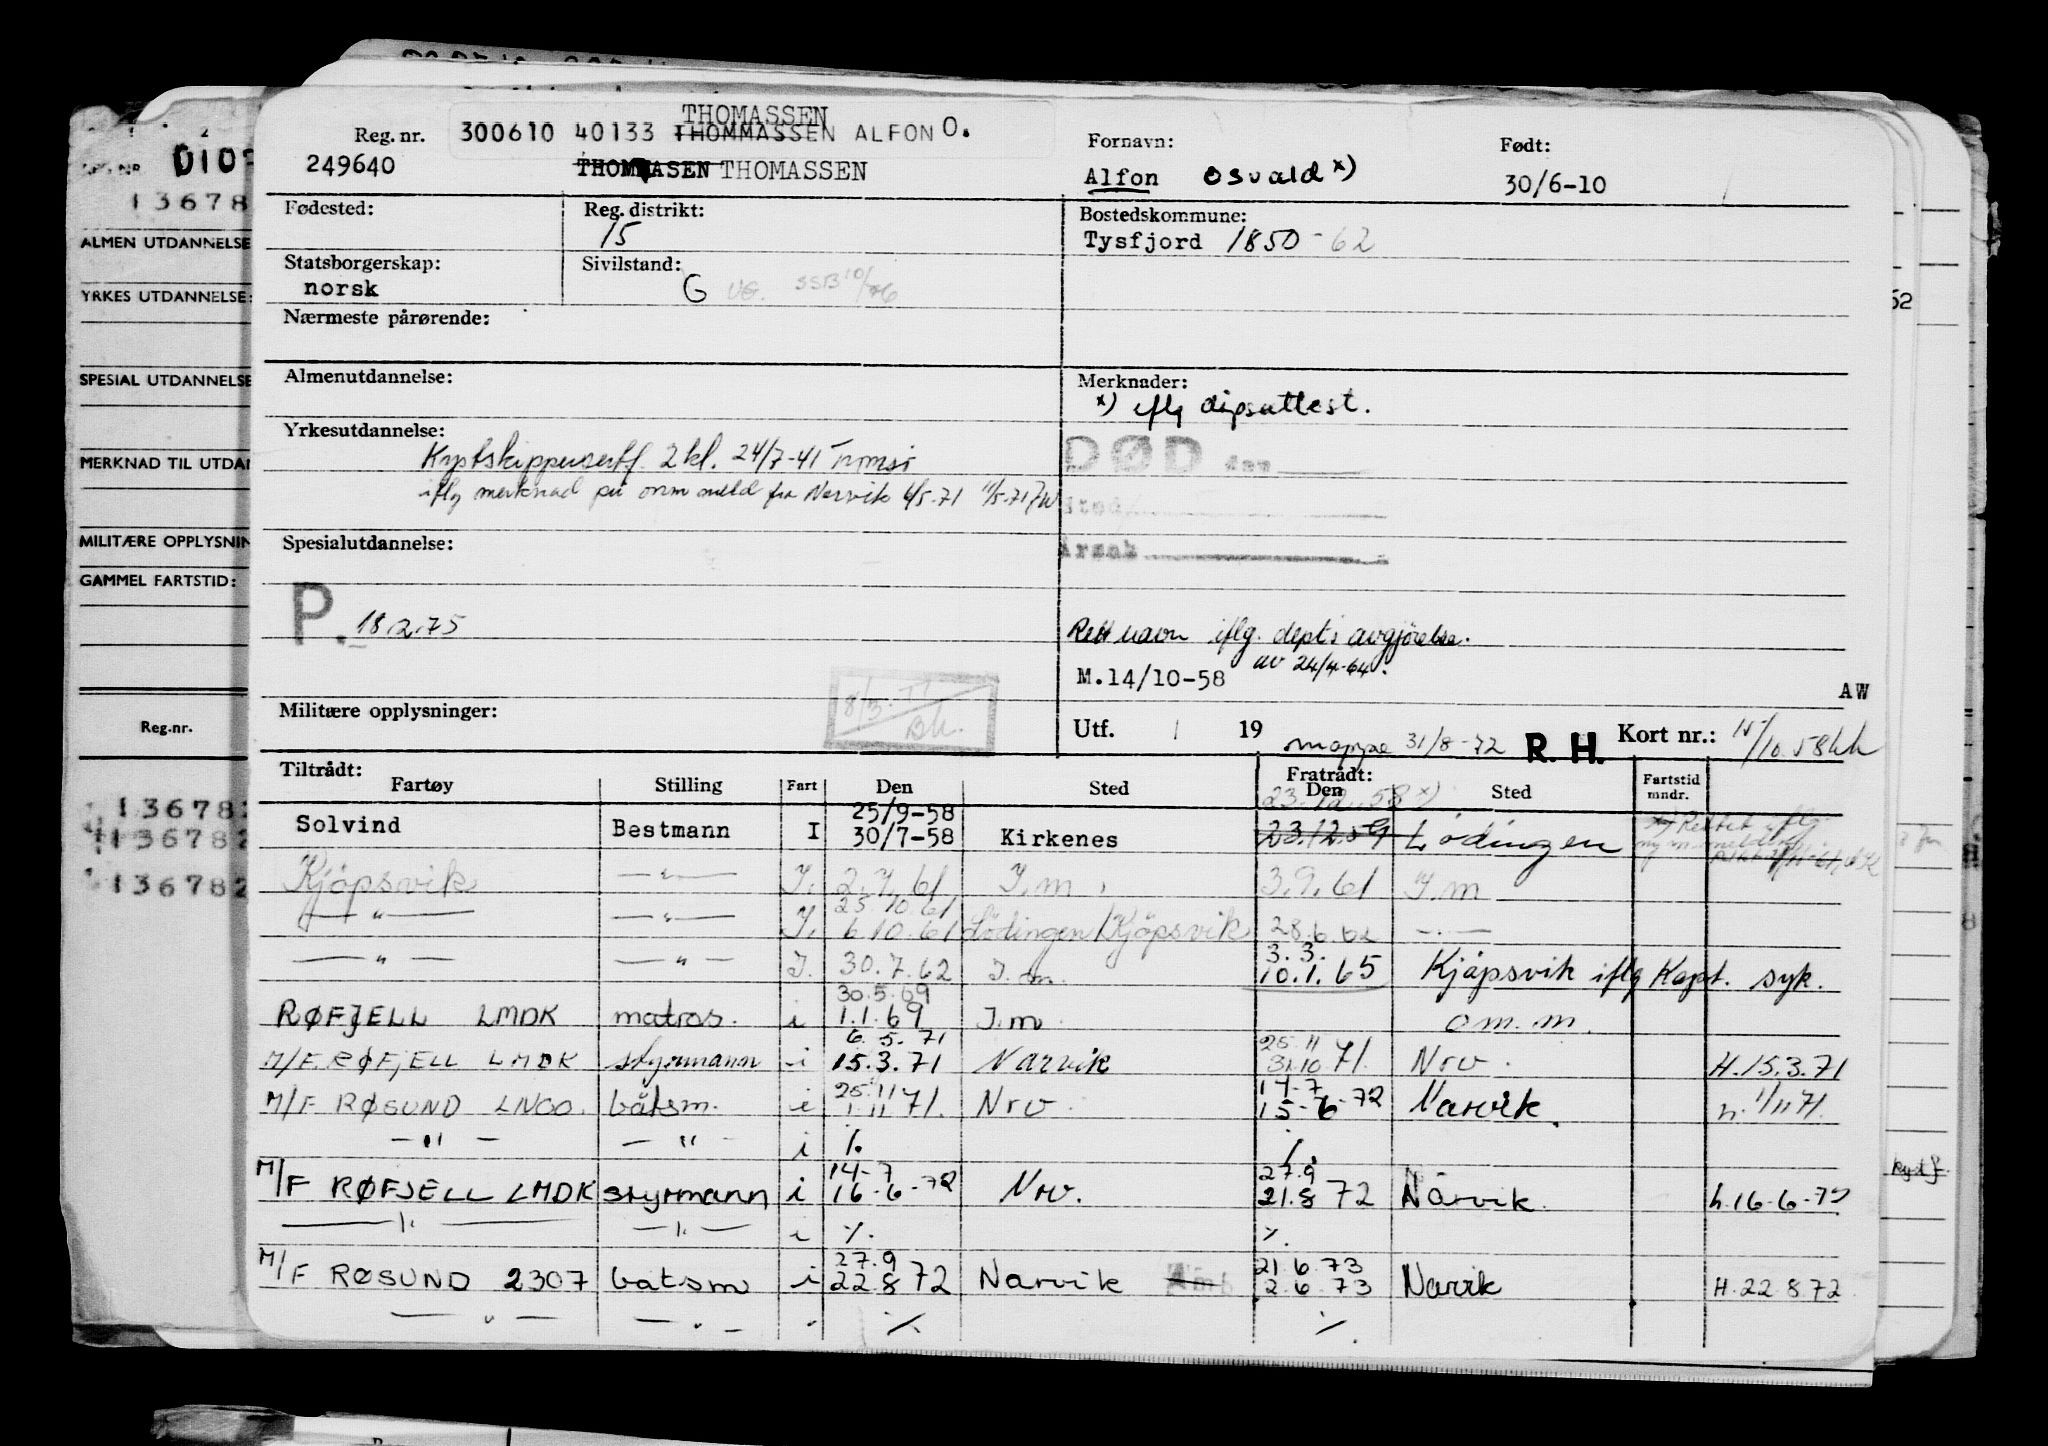 THOMASSEN
Reg. nr. 300610 40133 THOMMASSEN ALFON O.
249640 THOMMASEN THOMASSEN
Fornavn: Født:
Alfon Osvald x) 30/6-10
Fødested: Reg. distrikt: Bostedskommune:
15 Tysfjord 1850-62
Statsborgerskap: Sivilstand:
norsk G UG. SSB 10/76
Nærmeste pårørende:
Almenutdannelse: Merknader:
x) iflg dåpsattest.
Yrkesutdannelse: DØD den
Kystskippersertf. 2 kl. 24/7-41 Tromsø
iflg merknad på mnm meld fra Narvik 6/5-71 11/5-71
Sted
Spesialutdannelse: Årsak
P. 18.2.75
Rett navn iflg. dept's avgjørelse.
av 24/4-64.
M.14/10-58 AW
Militære opplysninger: 8/3-77
Bk.
Utf. 19 mappe 31/8-72 R. H. Kort nr.: 15/10.58
Tiltrådt: Fratrådt:
Fartøy Stilling Fart Den Sted Den Sted Fartstid mndr.
25/9-58 23.12.58 x)
Solvind Bestmann I 30/7-58 Kirkenes 23.12.59 Lödingen
Kjöpsvik —"— I. 2.7.61 I.m. 3.9.61 I.m
25.10.61
—"— —"— I. 6.10.61 Lödingen/Kjöpsvik 28.6.62 —"—
3.3.
—"— —"— I. 30.7.62 I.m. 10.1.65 Kjöpsvik iflg Kapt. syk.
30.5.69
RØFJELL LMDK matros. i 1.1.69 I.m om.m.
6.5.71 25.11
M/F RØFJELL LMDK styrmann i 15.3.71 Narvik 31.10 71. Nrv. H.15.3.71
25.11 14-7
M/F RØSUND LNOO. båtsm. i 1.11 71. Nrv. 15-6-72 Narvik. h. 1/11 71.
—"— —"— i %. %.
14-7 27.9
M/F RØFJELL LMDK styrmann i 16-6-72 Nrv. 21.8 72 Narvik. h.16-6-72
—"— —"— i %. %.
27.9 21.6.73
M/F RØSUND 2307 båtsm i 22.8 72 Narvik 2.6.73 Narvik H.22 8 72
—"— —"— " % %.
0102
13678
ALMEN UTDANNELSE
YRKES UTDANNELSE:
SPESIAL UTDANNELSE
MERKNAD TIL UTDAN
MILITÆRE OPPLYSNIN
GAMMEL FARTSTID:
Reg.nr.
136782
136782
136782
52